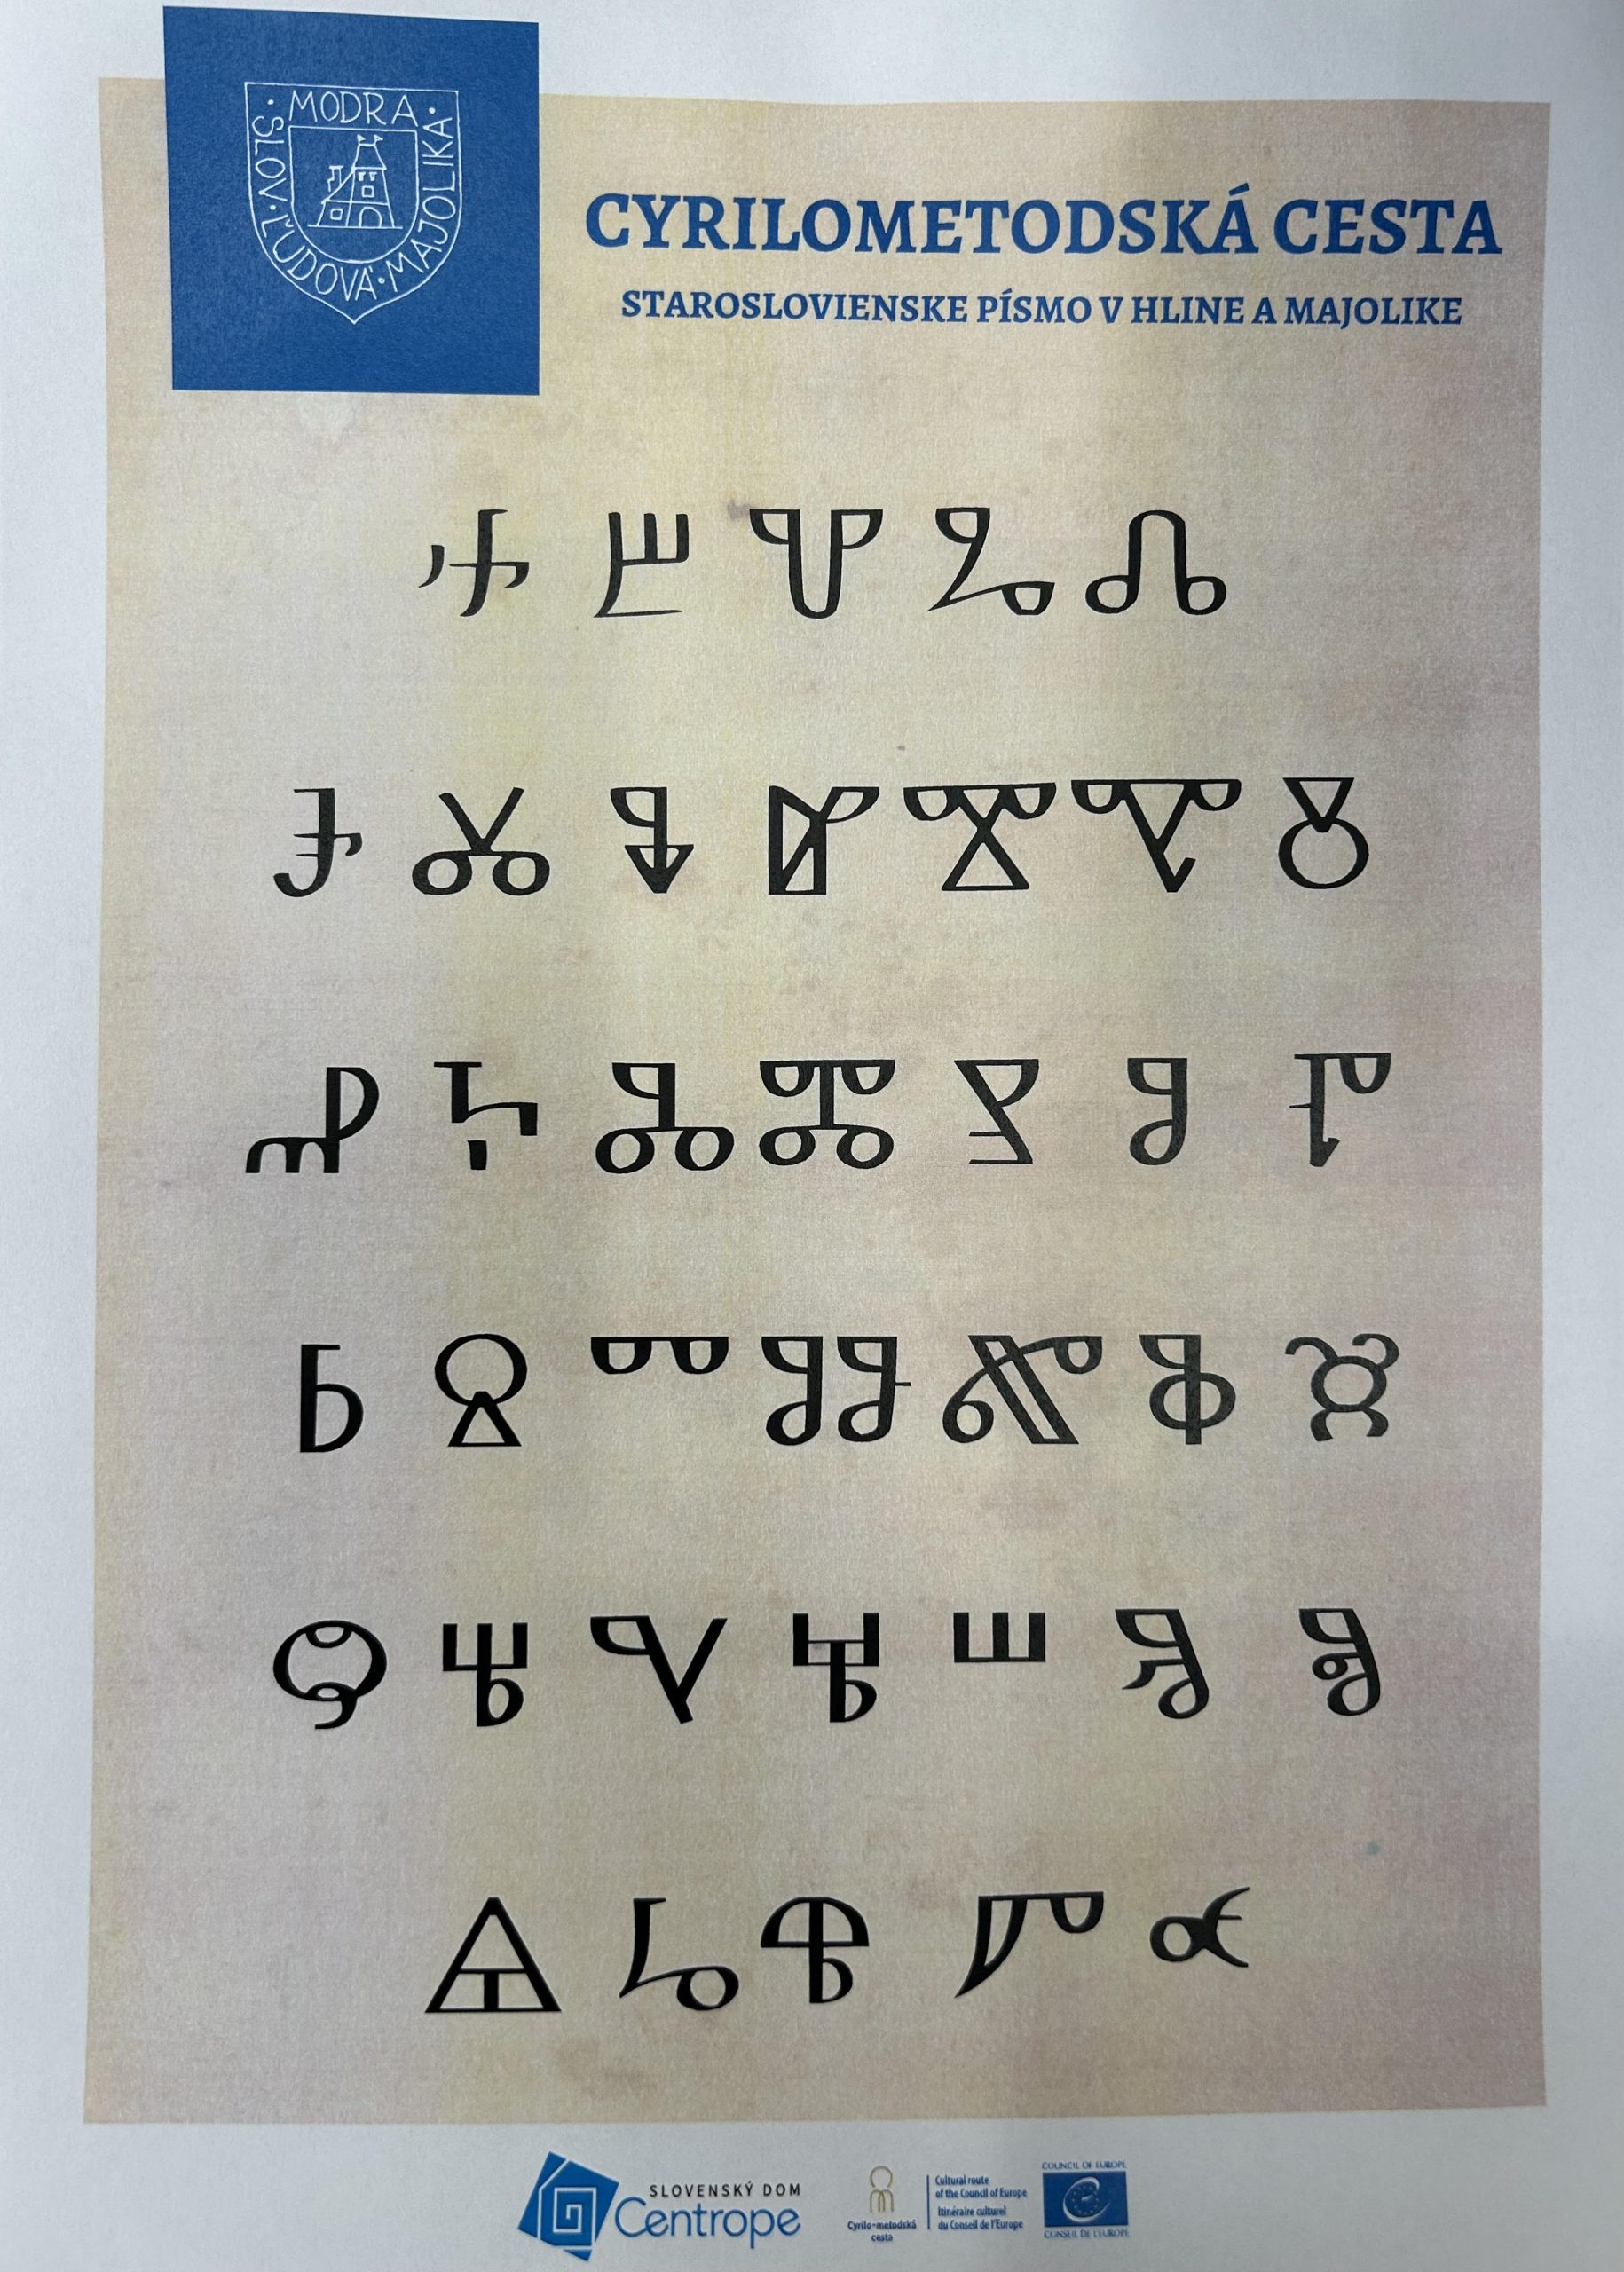 MODRA
SLOV. ĽUDOVÁ MAJOLIKA
CYRILOMETODSKÁ CESTA
STAROSLOVIENSKE PÍSMO V HLINE A MAJOLIKE
Ⰰ Ⰱ Ⰲ Ⰳ Ⰴ
Ⰵ Ⰶ Ⰷ Ⰸ Ⰹ Ⰺ Ⰻ
Ⰼ Ⰽ Ⰾ Ⰿ Ⱀ Ⱁ Ⱂ
Ⱃ Ⱄ Ⱅ Ⱆ Ⱛ Ⱇ Ⱒ
Ⱉ Ⱋ Ⱌ Ⱍ Ⱎ Ⱏ Ⱐ
Ⱑ Ⱈ Ⱓ Ⱊ Ⱔ
SLOVENSKÝ DOM
Centrope
Cyrilo-metodská
cesta
Cultural route
of the Council of Europe
Itinéraire culturel
du Conseil de l'Europe
COUNCIL OF EUROPE
CONSEIL DE L'EUROPE